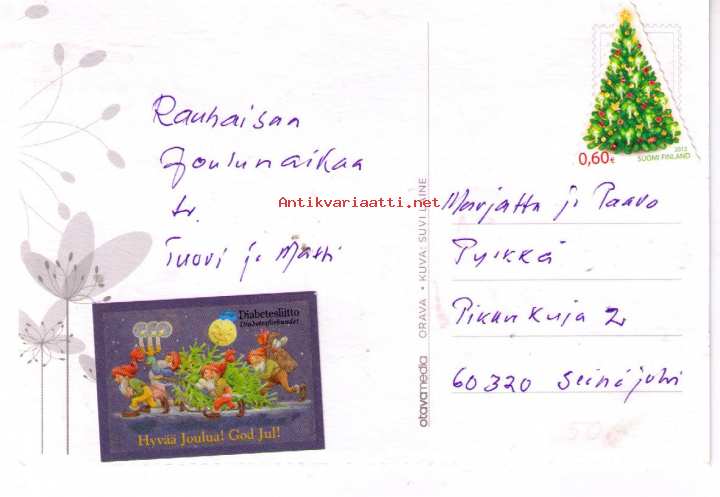 Rauhaisaa
Joulunaikaa
tv.
Tuovi ja Matti
Antikvariaatti.net
Diabetesliitto
Diabetesförbundet
Hyvää Joulua! God Jul!
otavamedia ORAVA • KUVA: SUVI LAINE
0,60€
2012
SUOMI FINLAND
Marjatta ja Paavo
Pikankuja 2
60320 Seinäjoki